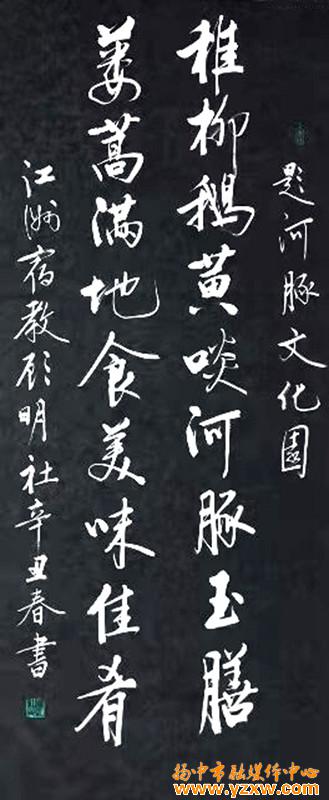 题河豚文化园
稚柳鹅黄啖河豚玉膳
蒌蒿满地食美味佳肴
江洲宿教顾明社辛丑春書
扬中市融媒体中心
www.yzxw.com